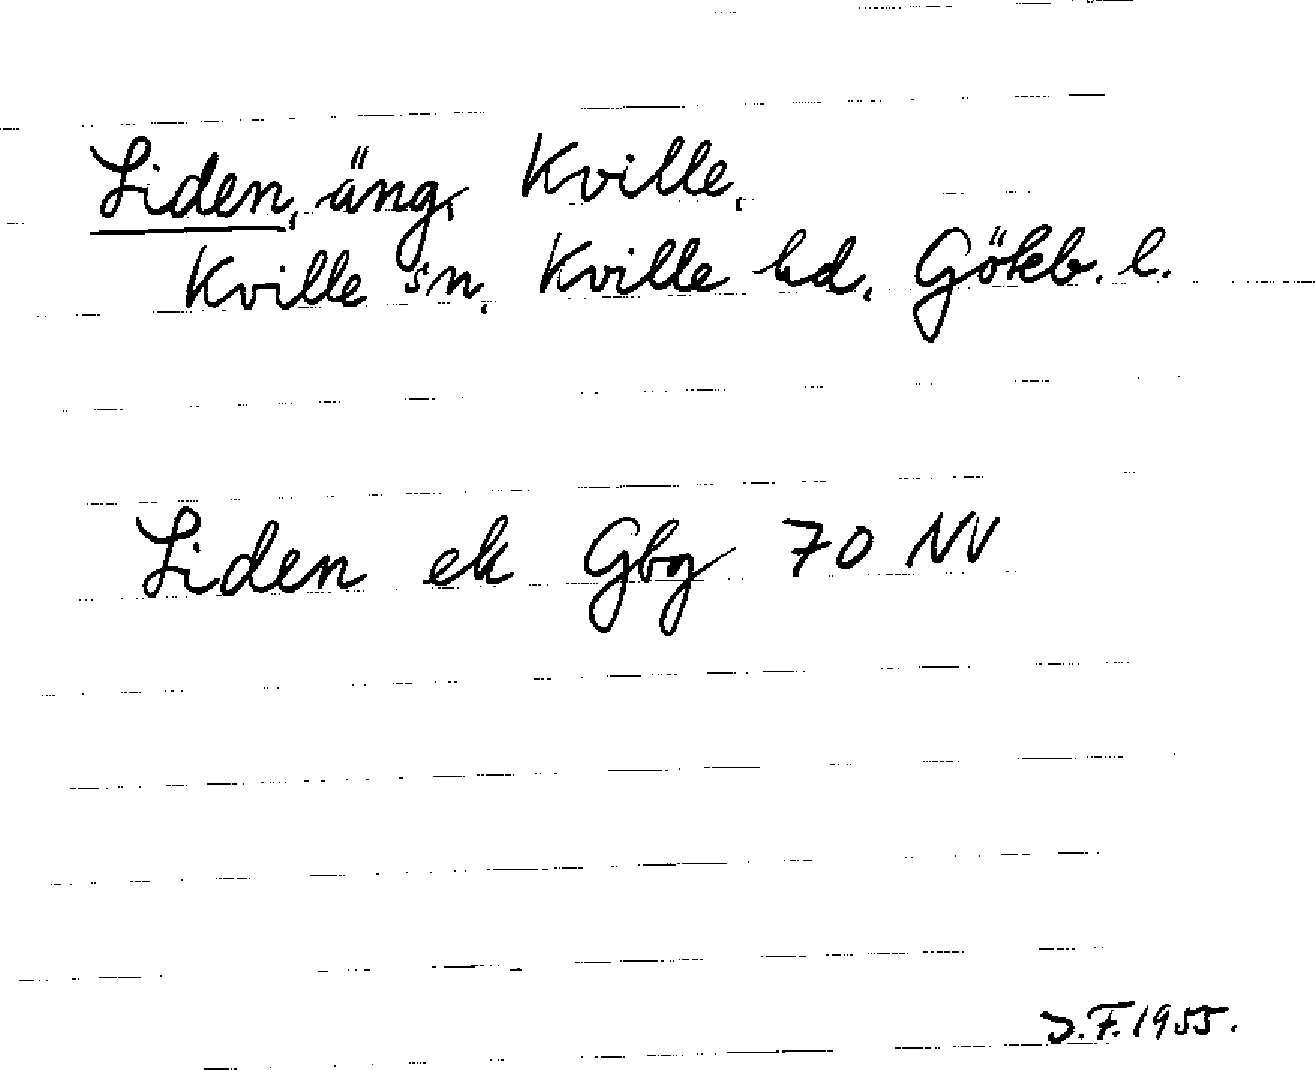 Liden, äng, Kville,
Kville sn, Kville hd, Göteb. l.
Liden ek Gbg 70 NV
J.F. 1955.